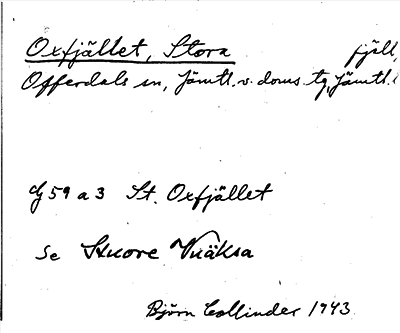 Oxfjället, Stora fjäll,
Offerdals sn, Jämtl. v. doms. tg, Jämtl.
59 a 3 St. Oxfjället
se Stuore Vuäksa
Björn Collinder 1943